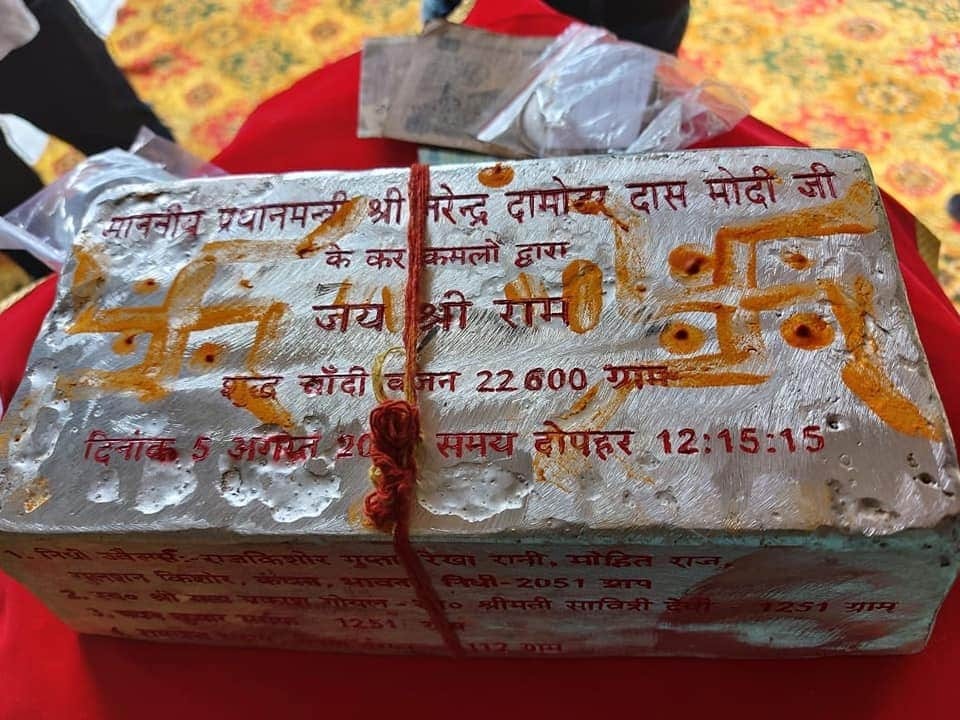 माननीय प्रधानमन्त्री श्री नरेन्द्र दामोदर दास मोदी जी
के कर कमलों द्वारा
जय श्री राम
शुद्ध चाँदी वजन 22600 ग्राम
दिनांक 5 अगस्त 20 समय दोपहर 12:15:15
1. निधी ज्वैलर्स:- राजकिशोर गुप्ता रेखा रानी, मोहित राज,
गुलशन किशोर, कंचन, भावना निधी-2051 ग्राम
2. स्व० श्री गोयल - श्रीमती सावित्री देवी - 1251 ग्राम
3. 1251
4. 112 ग्राम